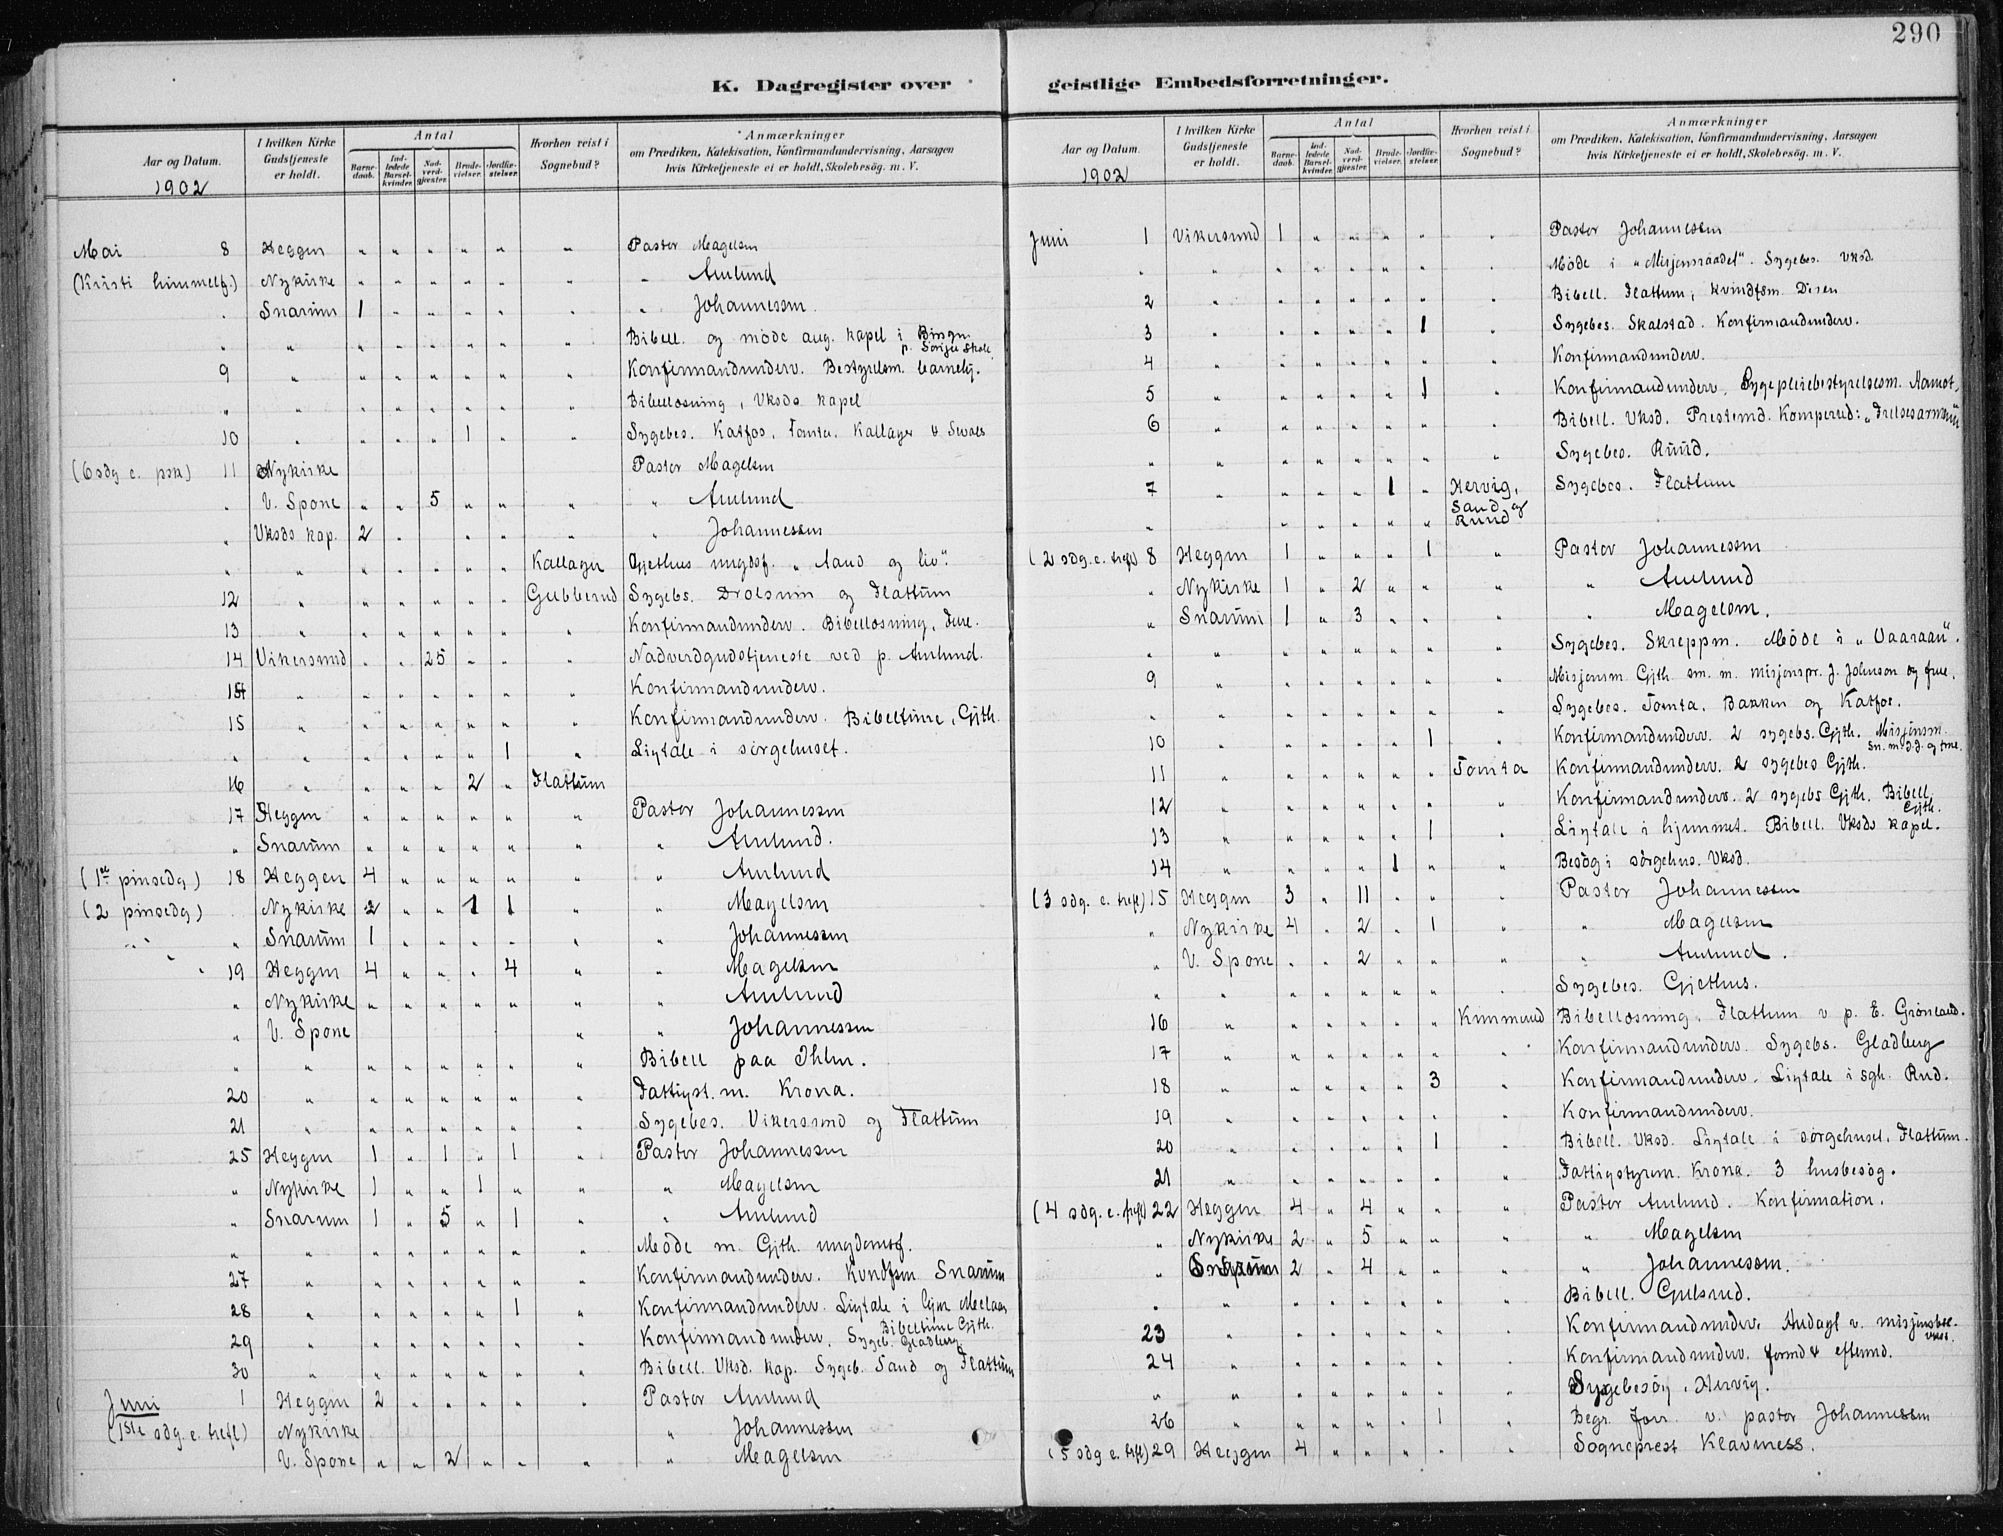 290
K. Dagregister over geistlige Embedsforretninger.
Aar og Datum.
1902
I hvilken Kirke Gudstjeneste er holdt.
Antal
Barnedaab.
Indledede Barselkvinder.
Nadverdgjæster.
Brudevielser.
Jordfæstelser.
Hvorhen reist i Sognebud?
Anmærkninger
om Prædiken, Katekisation, Konfirmandundervisning, Aarsagen
hvis Kirketjeneste ei er holdt, Skolebesøg. m. V.
Mai 8 Heggen " " " " " " Pastor Magelsen
(Kristi himmelf.) Nykirke " " " " " " " Amlund
" Snarum 1 " " " " " " Johannessen.
" " " " " " " " Bibell. og møde ang. kapel i Bingen
9 " " " " " " " Konfirmandunderv. Bestyrelsm. barnehj.
" " " " " " " " Bibellæsning, Vksds kapel
10 " " " " 1 " " Sygebes. Katfos, Tomta, Kallager
(6 sdg e. psk) 11 Nykirke Pastor Magelsen
" V. Spone " " 5 " " " " Amlund
" Vksds kap. 2 " " " " " Johannessen
" " " " " " " Kallager Gjethus ungdsf. "Aand og liv".
12 " " " " " " Gubberud Sygebs. Drolsum og Flattum
13 " " " " " " " Konfirmandunderv. Bibellæsning,
14 Vikersund " " 25 " " " Nadverdgudstjeneste ved p. Amlund.
" " " " " " " Konfirmandunderv.
15 " " " " " " " Konfirmandunderv. Bibeltime, Gjth.
" " " " " " 1 " Ligtale i sørgehuset.
16 " " " " 2 " Flattum
17 Heggen " " " " " " Pastor Johannessen
" Snarum " " " " " " " Amlund.
(1ste pinsedg) 18 Heggen 4 " " " " " " Amlund
(2 pinsedg) Nykirke 2 " " 1 1 " " Magelsen
" " " Snarum 1 " " " " " " Johannessen
" " 19 Heggen 4 " " " 4 " " Magelsen
" Nykirke " " " " " " " Amlund
" V. Spone " " Johannessen
" " " " " " " " Bibell paa Ihlen.
20 " " " " " " " Fattigst. m. Krona.
21 " " " " " " " Sygebes. Vikersund og Flattum
25 Heggen 1 " 1 " 1 " Pastor Johannessen
" Nykirke 1 " " 1 " " " Magelsen
" Snarum 1 " 5 " 1 " " Amlund
" " " " " " " " Møde m. Gjth. ungdomsf.
27 " " " " " " " Konfirmandunderv. Kvindfsm Snarum
28 " " " " " 1 " Konfirmandunderv. Ligtale i hjm
29 " " " " " " " Konfirmandunderv. Sygeb. Gladberg
Bibeltime Gjth.
30 " " " " " " " Bibell. Vksd. kap. Sygeb. Sand og Flattum
Juni 1 Heggen 2 " " " " " Pastor Amlund
(1ste sdg. e. trefl) Nykirke " Johannessen
V. Spone " " 2 " " " " Magelsen
Aar og Datum.
1902
I hvilken Kirke Gudstjeneste er holdt.
Antal
Barnedaab.
Indledede Barselkvinder.
Nadverdgjæster.
Brudevielser.
Jordfæstelser.
Hvorhen reist i Sognebud?
Anmærkninger
om Prædiken, Katekisation, Konfirmandundervisning, Aarsagen
hvis Kirketjeneste ei er holdt, Skolebesøg. m. V.
Juni 1 Vikersund 1 " " " " " Pastor Johannessen
" " " " " " " " Møde i "Misjonsraadet". Sygebes. Vksd.
2 " " " " " " " Bibell. Flattum, kvindfsm.
3 " " " " " 1 " Sygebes. Skalstad. Konfirmandunderv.
4 " " " " " " " Konfirmandunderv.
5 " " " " " 1 " Konfirmandunderv. Sygepleiebestyrelsesm. Aamot,
6 " " " " " " " Bibell. Vksd. Prestemd. Komperud: "Frelsesarmeen"
" " " " " " " " Sygebes. Ruud.
7 " " " " 1 " Hervig, Sand og Ruud Sygebes. Flattum
(2 sdg. e. trefl) 8 Heggen 1 " " " 1 " Pastor Johannessen
" Nykirke 1 " 2 " " " " Amlund
" Snarum 1 " 3 " " " " Magelsen.
" " " " " " " " Sygebes. Skreppen. Møde i "Vaaraan".
9 " " " " " " " Misjonsm Gjth sm. m. misjonspr. J. Johnson og frue.
" " " " " " " " Sygebes. Tomta, Bakken og Katfos.
10 " " " " " 1 " Konfirmandunderv. 2 sygebs. Gjth. Misjonsm.
Sn. m. J. J. og frue.
11 " " " " " " Tomta Konfirmandunderv. 2 sygebes Gjth.
12 " " " " " " " Konfirmandunderv. 2 sygebs Gjth. Bibell. Gjth.
13 " " " " " 1 " Ligtale i hjemmet. Bibell. Vksds kapel.
14 " " " " 1 " " Besøg i sørgehus. Vksd.
(3 sdg. e. trefl) 15 Heggen 3 " 11 " " " Pastor Johannessen
" Nykirke 4 " 2 " 1 " " Magelsen
" V. Spone " " 2 " " " " Amlund.
" " " " " " " " Sygebes. Gjethus.
16 " " " " " " Kimmerud Bibellæsning, Flattum v p. E. Grønland.
17 " " " " " " " Konfirmandunderv. Sygebs. Gladberg
18 " " " " " 3 " Konfirmandunderv. Ligtale i sgh. Rud.
19 " " " " " " " Konfirmandunderv.
20 " " " " " 1 " Bibell. Vksd. Ligtale i sørgehuset, Flattum.
21 " " " " " " " Fattigstyrem. Krona. 3 husbesøg.
(4 sdg. e. trefl) 22 Heggen 4 " 4 " " " Pastor Amlund. Konfirmation.
" Nykirke 2 " 5 " " " " Magelsen
" Snarum 2 " 4 " " " " Johannessen.
" " " " " " " " Bibell. Gulsrud.
23 " " " " " " " Konfirmandunderv. Andagt v.
24 " " " " " " " Konfirmandunderv. formd & eftermd.
" " " " " " " " Sygebesøg, Hervig.
26 " " " " " 1 " Begr. forr. v. pastor Johannessen
(5 sdg e. trefl) 29 Heggen 4 " " " " " Sogneprest Klavness.